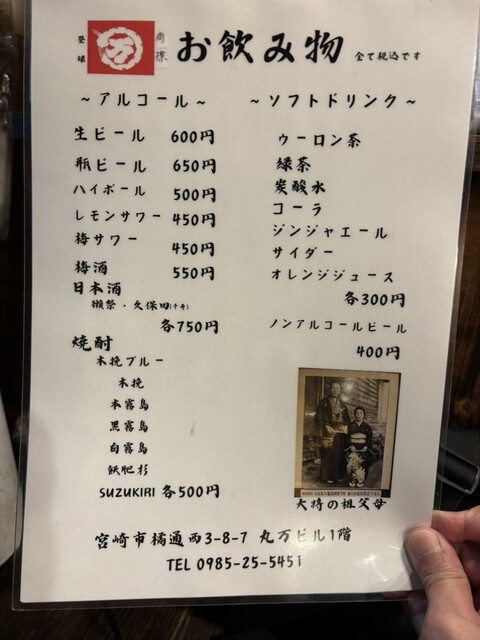 登録 万 商標 お飲み物 全て税込です
~アルコール~
生ビール 600円
瓶ビール 650円
ハイボール 500円
レモンサワー 450円
梅サワー 450円
梅酒 550円
日本酒
獺祭・久保田(千寿)
各750円
焼酎
木挽ブルー
木挽
本霧島
黒霧島
白霧島
飫肥杉
SUZUKIRI 各500円
~ソフトドリンク~
ウーロン茶
緑茶
炭酸水
コーラ
ジンジャエール
サイダー
オレンジジュース
各300円
ノンアルコールビール
400円
大将の祖父母
宮崎市橘通西3-8-7 丸万ビル1階
TEL 0985-25-5451